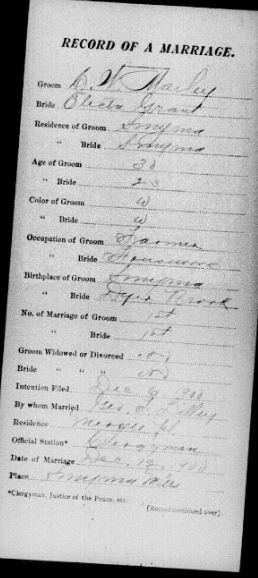 RECORD OF A MARRIAGE.
Groom
Bride Electa Grant
Residence of Groom Smyrna
" Bride Smyrna
Age of Groom
" Bride
Color of Groom W
" Bride W
Occupation of Groom Farmer
" Bride
Birthplace of Groom Smyrna
" Bride Dyer Brook
No. of Marriage of Groom 1st
" Bride 1st
Groom Widowed or Divorced no
Bride " " " no
Intention Filed Dec 9, 900
By whom Married Geo.
Residence
Official Station* Clergyman
Date of Marriage Dec. 12, 900
Place Smyrna Mills
*Clergyman, Justice of the Peace, etc.
[Record continued over].